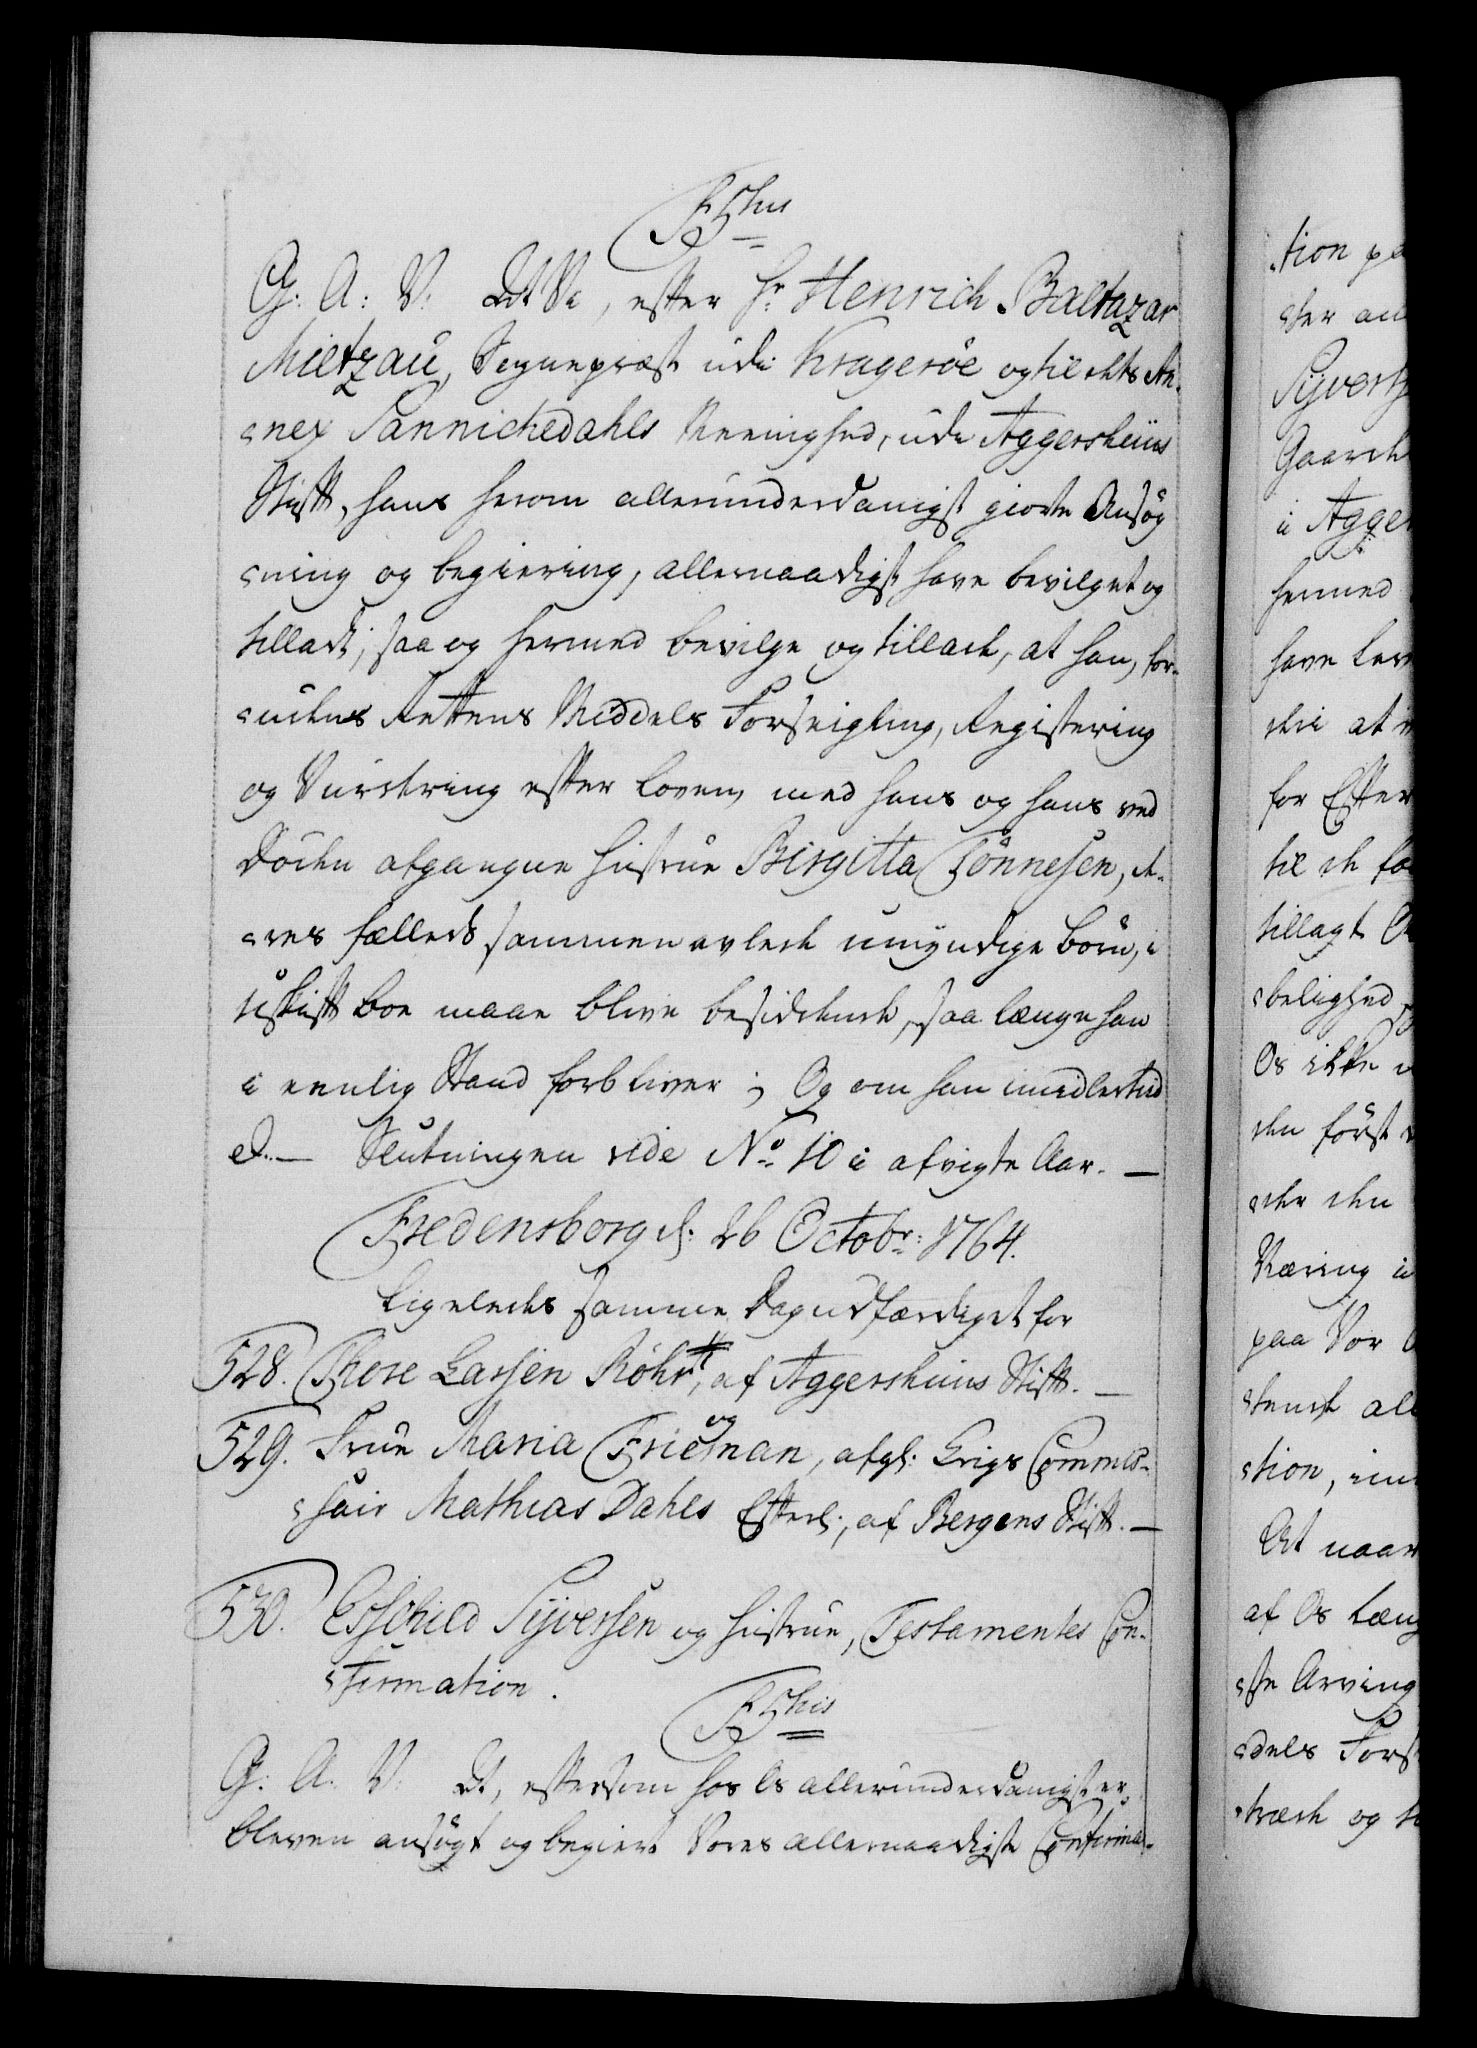 F 5<sup>tus</sup>
G: A: V: At Vi, efter Hr Henrich Baltazar
Mietzau, Sognepræst udi Kragerøe og til dets An-
nex Sannichedahls Meenighed, udi Aggershuus
Stift, hans herom allerunderdanigst giorte Ansøg
ning og begiering, allernaadigst have bevilget og
tilladt; saa og hermed bevilge og tillade, at han, for-
uden Rettens Middels Forseigling, Registering
og Vurdering efter Loven, med hans og hans ved
Døden afgangne Hustrue Birgitta Tönnesen, de-
res fælleds sammen avlede umyndige börn, i
uskift boe maae blive besiddende, saa længe han
i eenlig Stand forbliver; Og om han imidlertiid
Slutningen vide No 10 i afvigte Aar. —
Fredensborg d: 26 Octobr: 1764.
Ligeledes samme Dag udfærdiget for
528. Thore Larsen Röhr, af Aggershuus Stift. —
529. Frue Maria Frisman, afgl: Krigs Commis-
sair Mathias Dahls Efterl:, af Bergens Stift. —
530. Eschild Sÿversen og Hustrue, Testamentes Con-
firmation.
G: A: V: At, eftersom hos Os allerunderdanigst er
bleven ansögt og begiert Vores allernaadigste Confirma-
tion pa
ster an
Sÿverts
Gaard
i Agger
hermed
have lev
at
for Efter
til de
tillagt
belighed
Os ikke
den först
den
Næring i
paa Vor
stende all
tion,
At naar
af Os
ste Arving
dels Fors
træde og